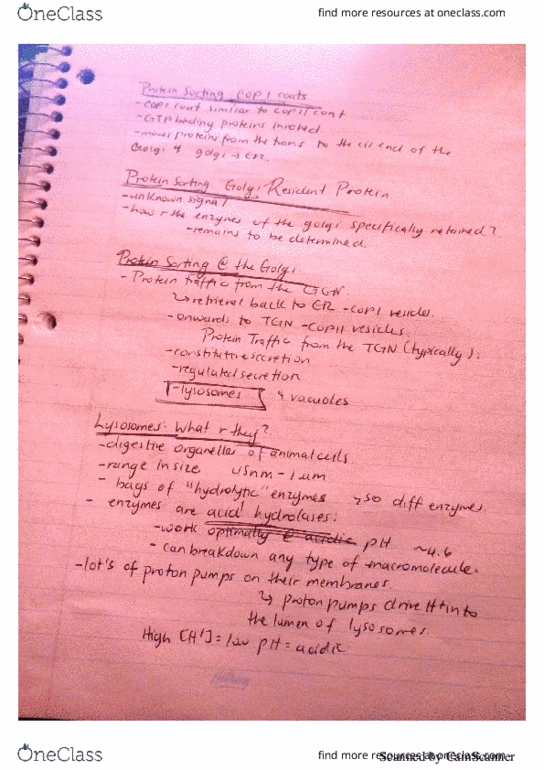 OneClass
find more resources at oneclass.com
Protein Sorting COP I coats
- COP1 coat similar to COP11 coat
- GTP binding proteins involved
- moves proteins from the trans to the cis end of the
Golgi & golgi → ER.
Protein Sorting Golgi Resident Protein
- unknown signal
- how r the enzymes of the golgi specifically retained?
- remains to be determined.
Protein Sorting @ the Golgi
- Protein Traffic from the CGN
↳ retrieval back to ER - COP1 vesicles.
- onwards to TGN - COP11 vesicles.
Protein Traffic from the TGN (typically):
- constitutive secretion
- regulated secretion
- lysosomes & vacuoles
Lysosomes: what r they?
- digestive organelles of animal cells
- range in size 45nm - 1 um
- bags of "hydrolytic" enzymes 50 diff enzymes.
- enzymes are acid hydrolases:
- work optimally @ acidic pH ~4.6
- can breakdown any type of macromolecule.
- lot's of proton pumps on their membranes.
↳ proton pumps drive H+ into
the lumen of lysosomes.
High [H+] = low pH = acidic
OneClass
find more resources at oneclass.com
Scanned by CamScanner